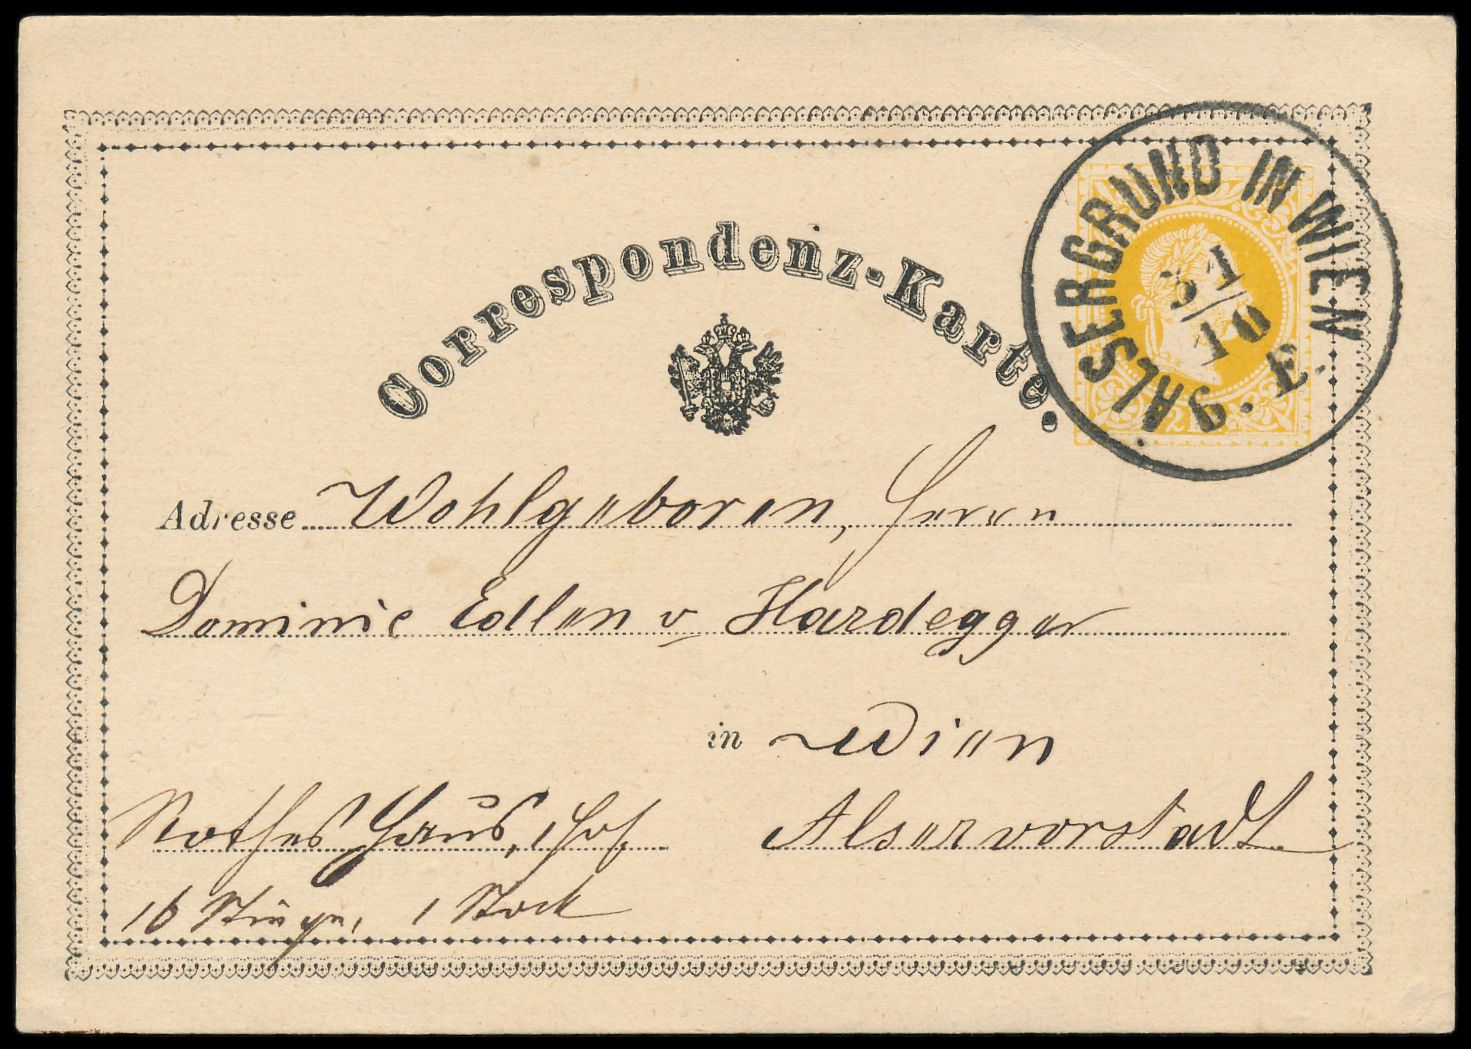 Correspondenz-Karte.
ALSERGRUND IN WIEN
31/10
9. E.
2 K
Adresse Wohlgeboren, Herrn
Dominic Edlen v Hardegger
in Wien
Rothes Haus, 1 Hof, Alservorstadt.
16 Stiege, 1 Stock